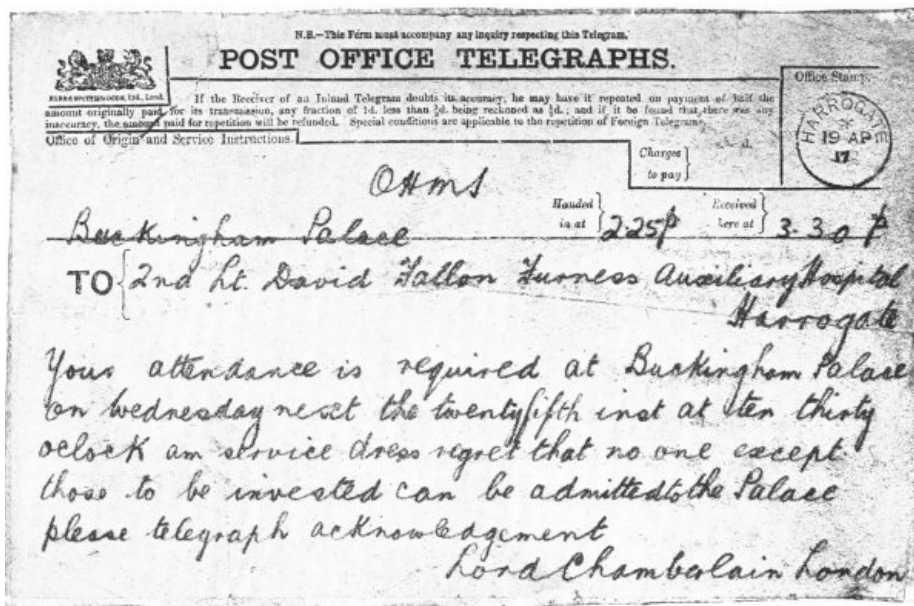 N.B.—This Form must accompany any inquiry respecting this Telegram.
POST OFFICE TELEGRAPHS.
Office Stamp.
If the Receiver of an Inland Telegram doubts its accuracy, he may have it repeated on payment of half the
amount originally paid for its transmission, any fraction of 1d. less than ½d. being reckoned as ½d.; and if it be found that there was any
inaccuracy, the amount paid for repetition will be refunded. Special conditions are applicable to the repetition of Foreign Telegrams.
Office of Origin and Service Instructions.
Charges to pay
d.
HARROGATE
19 AP
17
OHMS
Buckingham Palace
Handed in at 2.25p
Received here at 3.30p
TO 2nd Lt. David Fallon Furness Auxiliary Hospital
Harrogate
Your attendance is required at Buckingham Palace
on Wednesday next the twentyfifth inst at ten thirty
oclock am service dress regret that no one except
those to be invested can be admitted to the Palace
please telegraph acknowledgement
Lord Chamberlain London